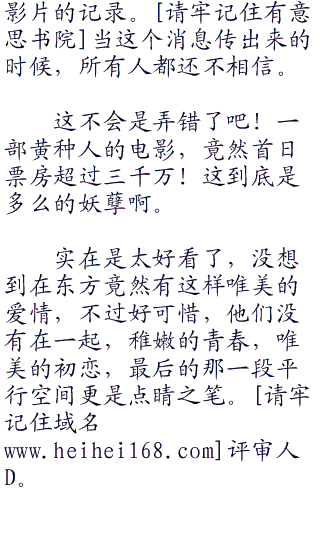 影片的记录。[请牢记住有意
思书院]当这个消息传出来的
时候，所有人都还不相信。
这不会是弄错了吧！一
部黄种人的电影，竟然首日
票房超过三千万！这到底是
多么的妖孽啊。
实在是太好看了，没想
到在东方竟然有这样唯美的
爱情，不过好可惜，他们没
有在一起，稚嫩的青春，唯
美的初恋，最后的那一段平
行空间更是点睛之笔。[请牢
记住域名
www.heihei168.com]评审人
D。